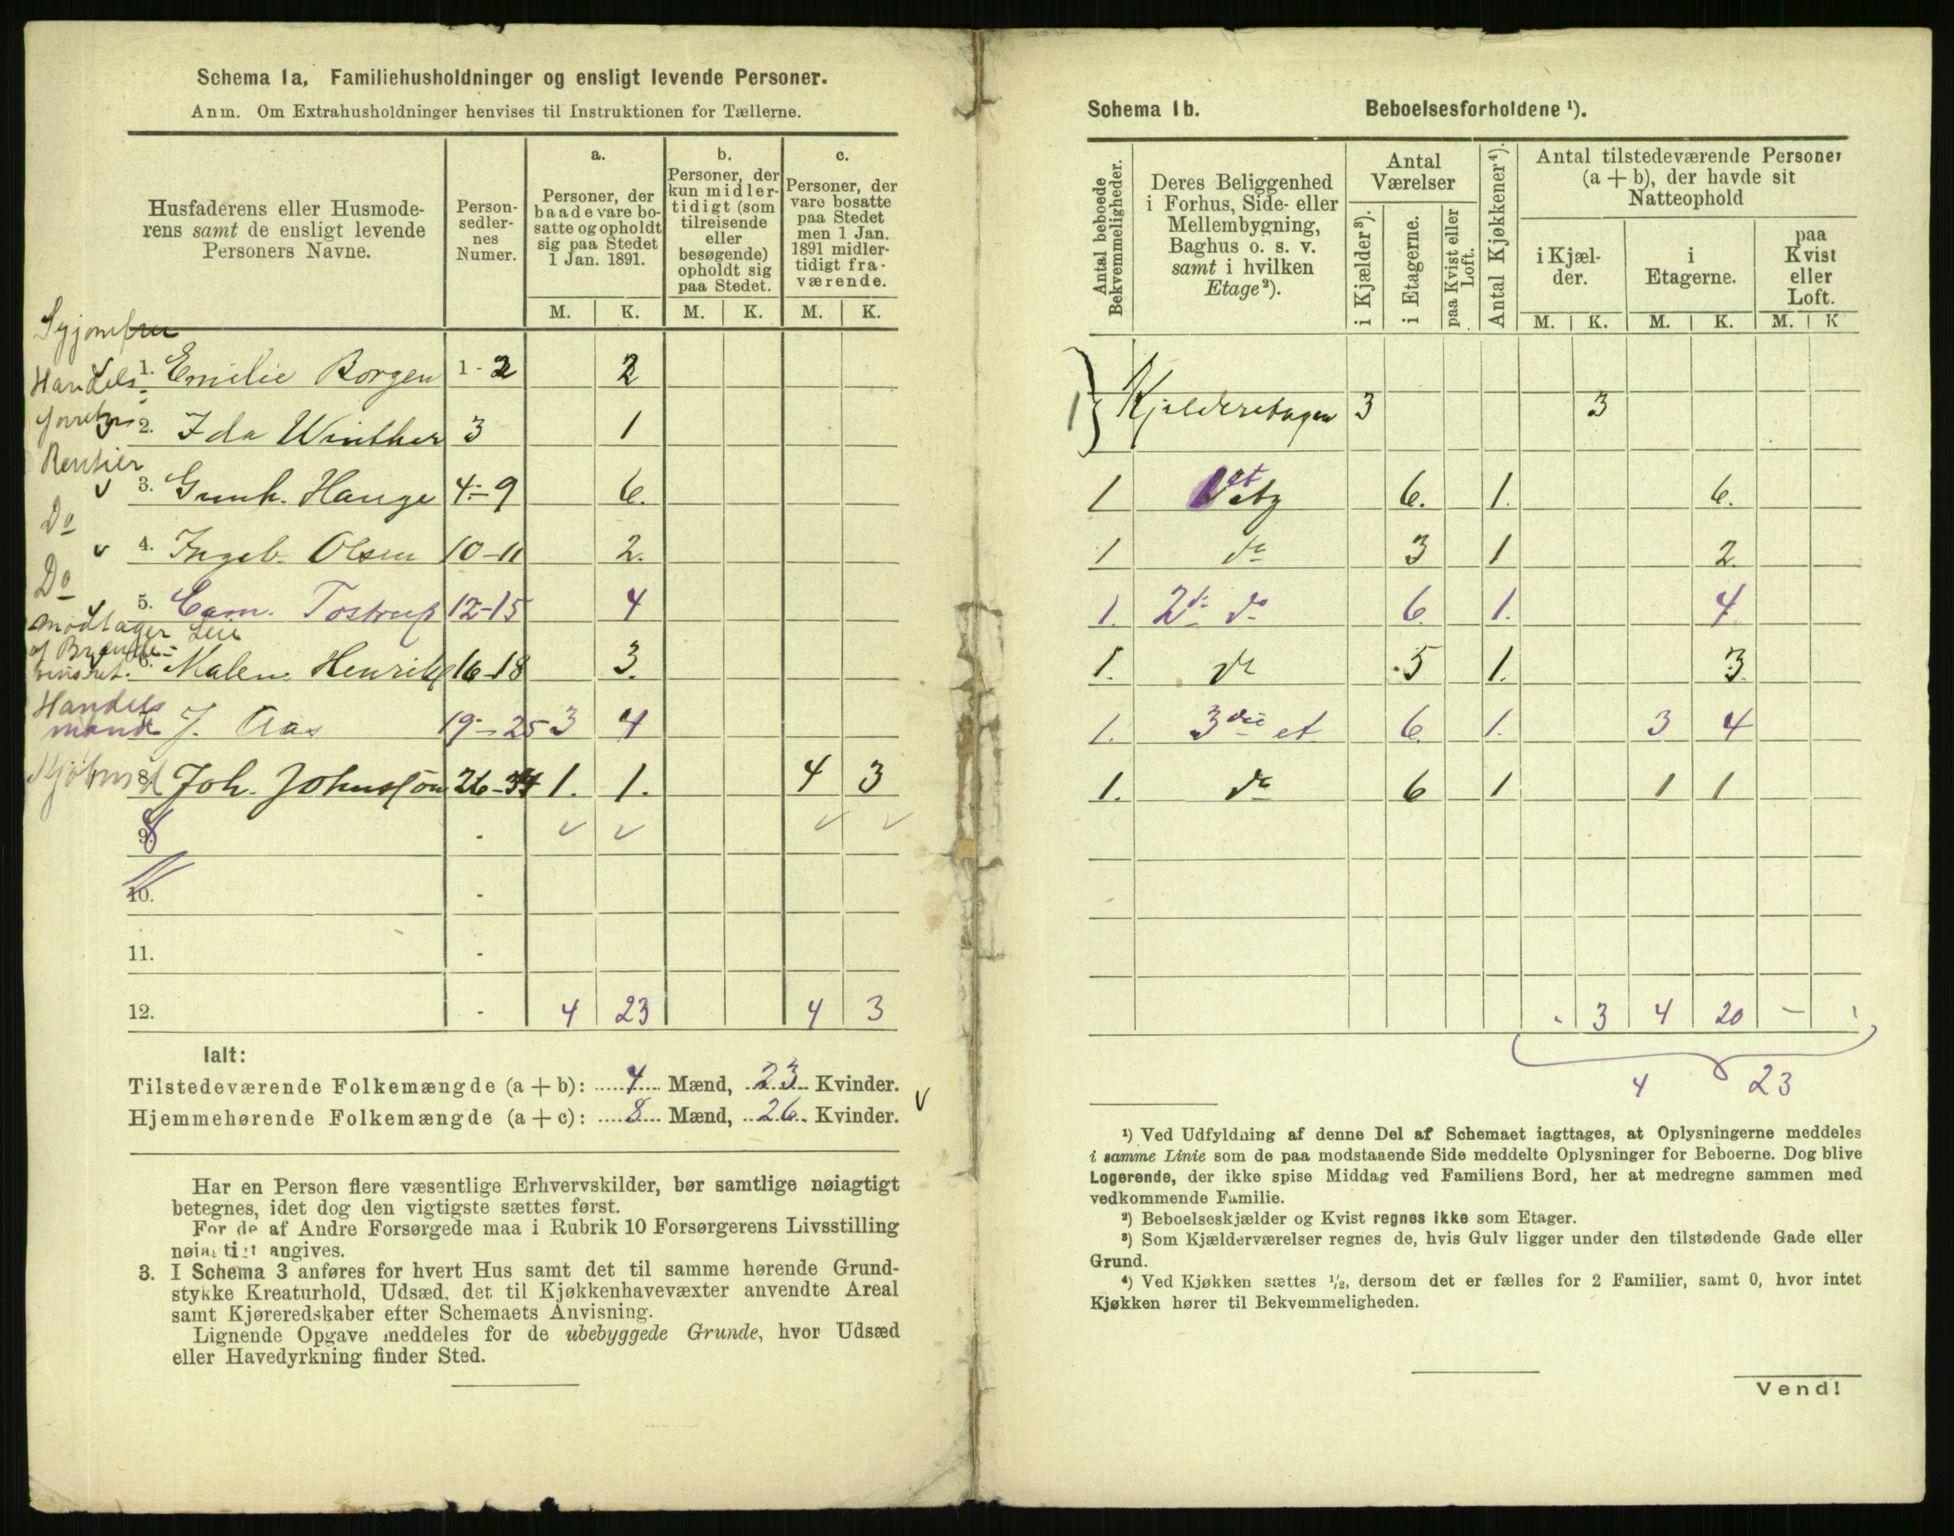 Schema 1a, Familiehusholdninger og ensligt levende Personer.
Anm. Om Extrahusholdninger henvises til Instruktionen for Tællerne.
Husfaderens eller Husmode-
rens samt de ensligt levende
Personers Navne.
Person-
sedler-
nes
Numer.
a.
Personer, der
baade vare bo-
satte og opholdt
sig paa Stedet
1 Jan. 1891.
b.
Personer, der
kun midler-
tidigt (som
tilreisende
eller
besøgende)
opholdt sig
paa Stedet.
c.
Personer, der
vare bosatte
paa Stedet
men 1 Jan.
1891 midler-
tidigt fra-
værende.
M. K. M. K. M. K.
Syjomfru
1. Emilie Borgen 1-2 2
Handels
2. Ida Winther 3 1
Rentier
3. Gunh. Hauge 4-9 6.
Do
4. Ingeb. Olsen 10-11 2.
Do
5. Cam. Tostrup 12-15 4
modtager Leie
6. Malen Henriks 16-18 3.
Handels
mand J. Aas 19-25 3 4
8. Joh. Johnsson 26-34 1. 1. 4 3
9. 8 - ✓ ✓ ✓ ✓
10. -
11. -
12. - 4 23 4 3
Ialt:
Tilstedeværende Folkemængde (a + b): 4 Mænd, 23 Kvinder.
Hjemmehørende Folkemængde (a + c): 8 Mænd, 26 Kvinder. ✓
Har en Person flere væsentlige Erhvervskilder, bør samtlige nøiagtigt
betegnes, idet dog den vigtigste sættes først.
For de af Andre Forsørgede maa i Rubrik 10 Forsørgerens Livsstilling
nøiagtigt angives.
3. I Schema 3 anføres for hvert Hus samt det til samme hørende Grund-
stykke Kreaturhold, Udsæd, det til Kjøkkenhavevæxter anvendte Areal
samt Kjøreredskaber efter Schemaets Anvisning.
Lignende Opgave meddeles for de ubebyggede Grunde, hvor Udsæd
eller Havedyrkning finder Sted.
Schema 1b. Beboelsesforholdene ¹).
Antal beboede
Bekvemmeligheder.
Deres Beliggenhed
i Forhus, Side- eller
Mellembygning,
Baghus o. s. v.
samt i hvilken
Etage²).
Antal
Værelser
i Kjælder³).
i Etagerne.
paa Kvist eller
Loft.
Antal Kjøkkener⁴).
Antal tilstedeværende Personer
(a + b), der havde sit
Natteophold
i Kjæl-
der.
i
Etagerne.
paa
Kvist
eller
Loft.
M. K. M. K. M. K
1 } Kjelderetagen 3 3
1 1st etg 6. 1. 6.
1 do 3 1 2.
1. 2de do 6. 1. 4.
1. do 5 1. 3.
1. 3die et 6. 1. 3 4
1. do 6 1 1 1
- 3 4 20 -
4 23
¹) Ved Udfyldning af denne Del af Schemaet iagttages, at Oplysningerne meddeles
i samme Linie som de paa modstaaende Side meddelte Oplysninger for Beboerne. Dog blive
Logerende, der ikke spise Middag ved Familiens Bord, her at medregne sammen med
vedkommende Familie.
²) Beboelseskjælder og Kvist regnes ikke som Etager.
³) Som Kjælderværelser regnes de, hvis Gulv ligger under den tilstødende Gade eller
Grund.
⁴) Ved Kjøkken sættes ½, dersom det er fælles for 2 Familier, samt 0, hvor intet
Kjøkken hører til Bekvemmeligheden.
Vend!